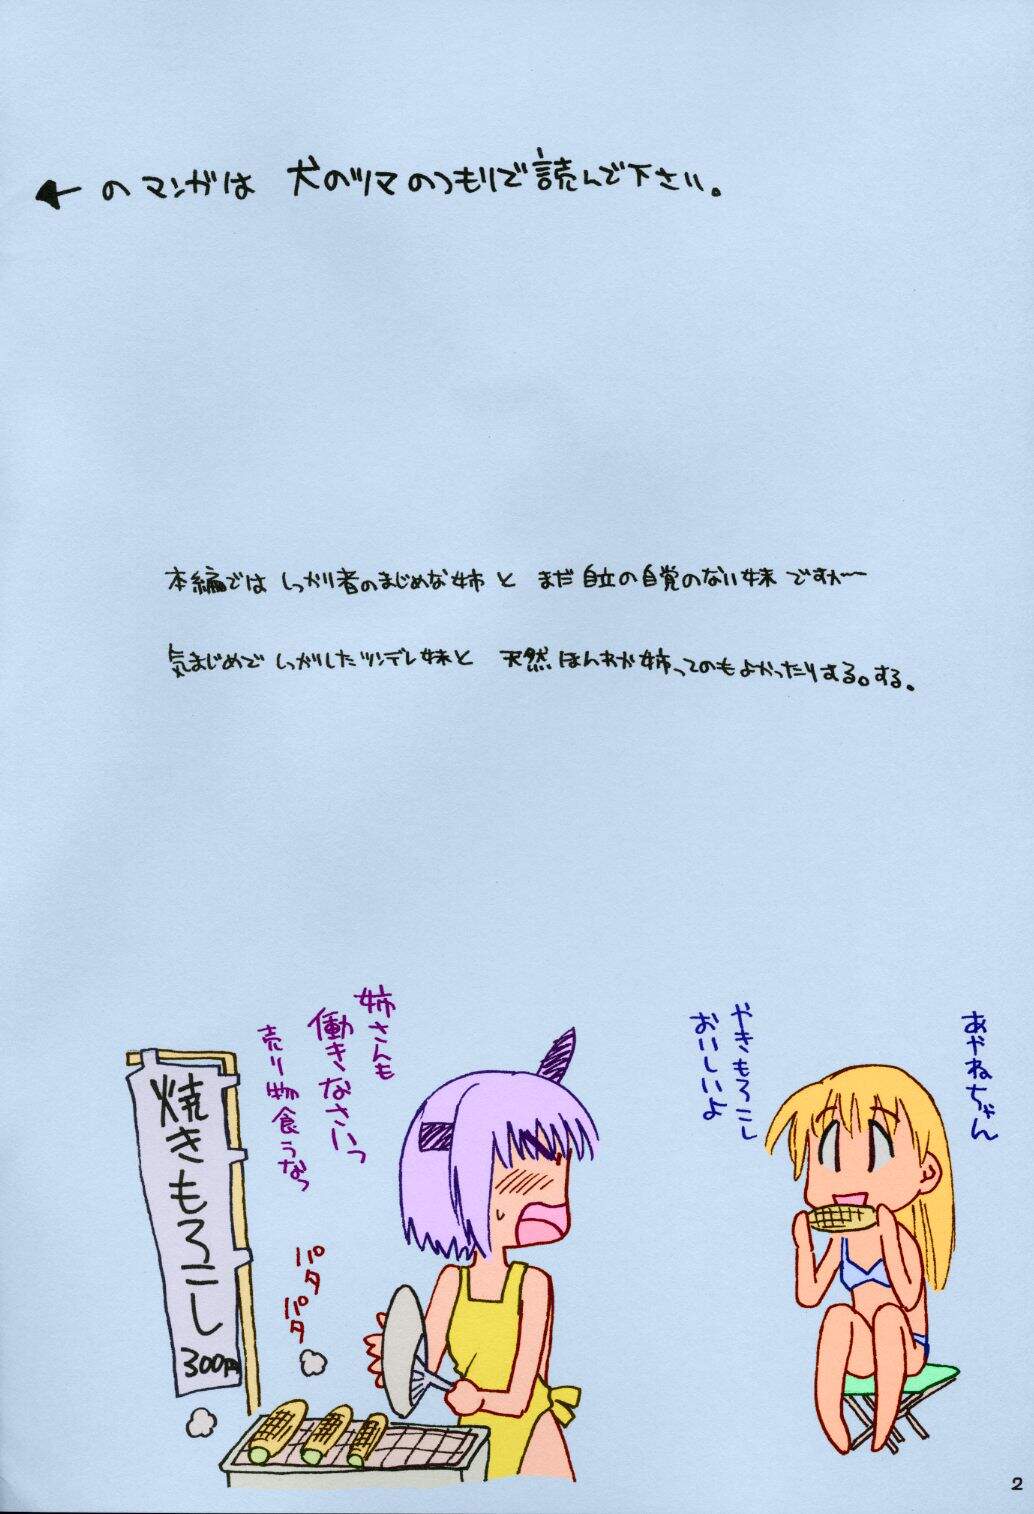 ← のマンガは 犬のツマのつもりで読んで下さい。
本編では しっかり者のまじめな姉と まだ自立の自覚のない妹ですが〜
気まじめで しっかりしたツンデレ妹と 天然ほんわか姉ってのもよかったりする。する。
あやねちゃん
やきもろこし
おいしいよ
姉さんも
働きなさいっ
売り物食うなっ
パタ
パタ
焼きもろこし
300円
2